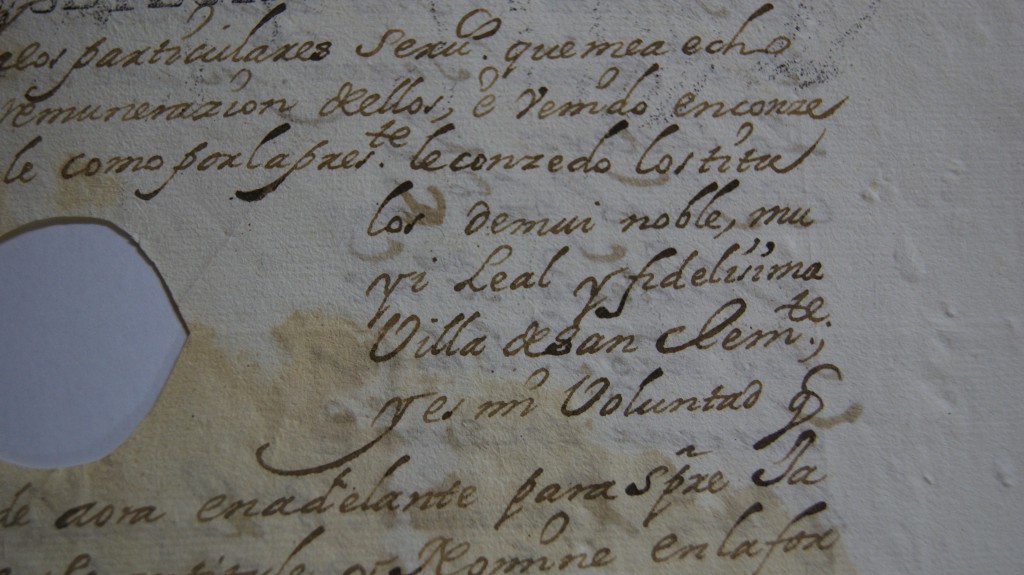 particulares Seruos. que me a echo
remunerazion de ellos, è Venido en conze
le como por la preste. le conzedo los titu
los de mui noble, mu
yi Leal y fidelisima
Villa de san Clemte.,
y es mi Voluntad q
de aora en adelante para spre Ja
Nomine en la for